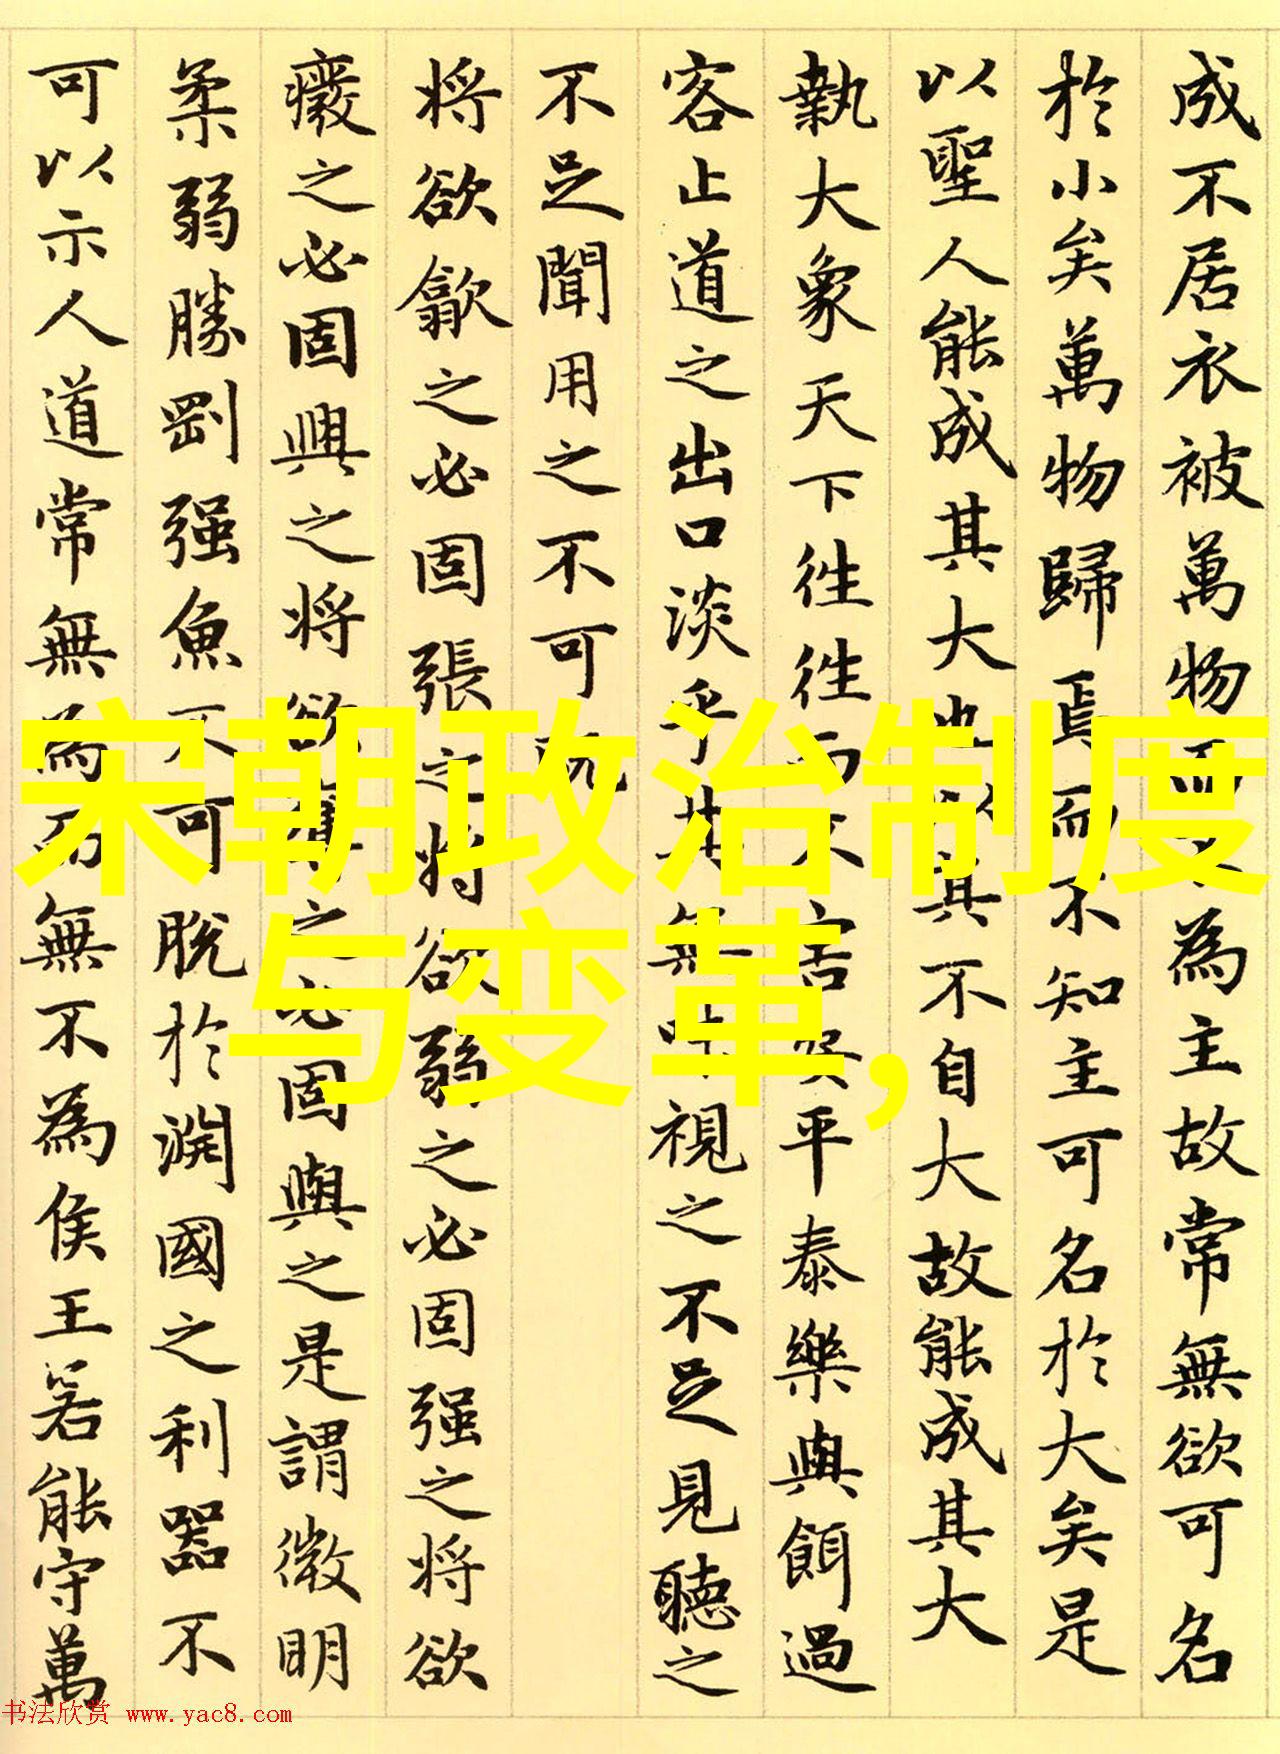 成不居衣被萬物而不為主故常無欲可名
於小矣萬物歸焉而不知主可名於大矣是
以聖人能成其大也以其不自大故能成其大
執大象天下往往而不害安平泰樂與餌過
客止道之出口淡乎其無味視之不足見聽之
不足聞用之不可既
将欲歙之必固張之将欲弱之必固强之将欲
癈之必固興之将欲奪之必固與之是謂微明
柔弱勝剛强魚不可脱於淵國之利器不
可以示人道常無為而無不為侯王若能守萬
宋朝政治制度
与变革,
书法欣赏 www.yac8.com